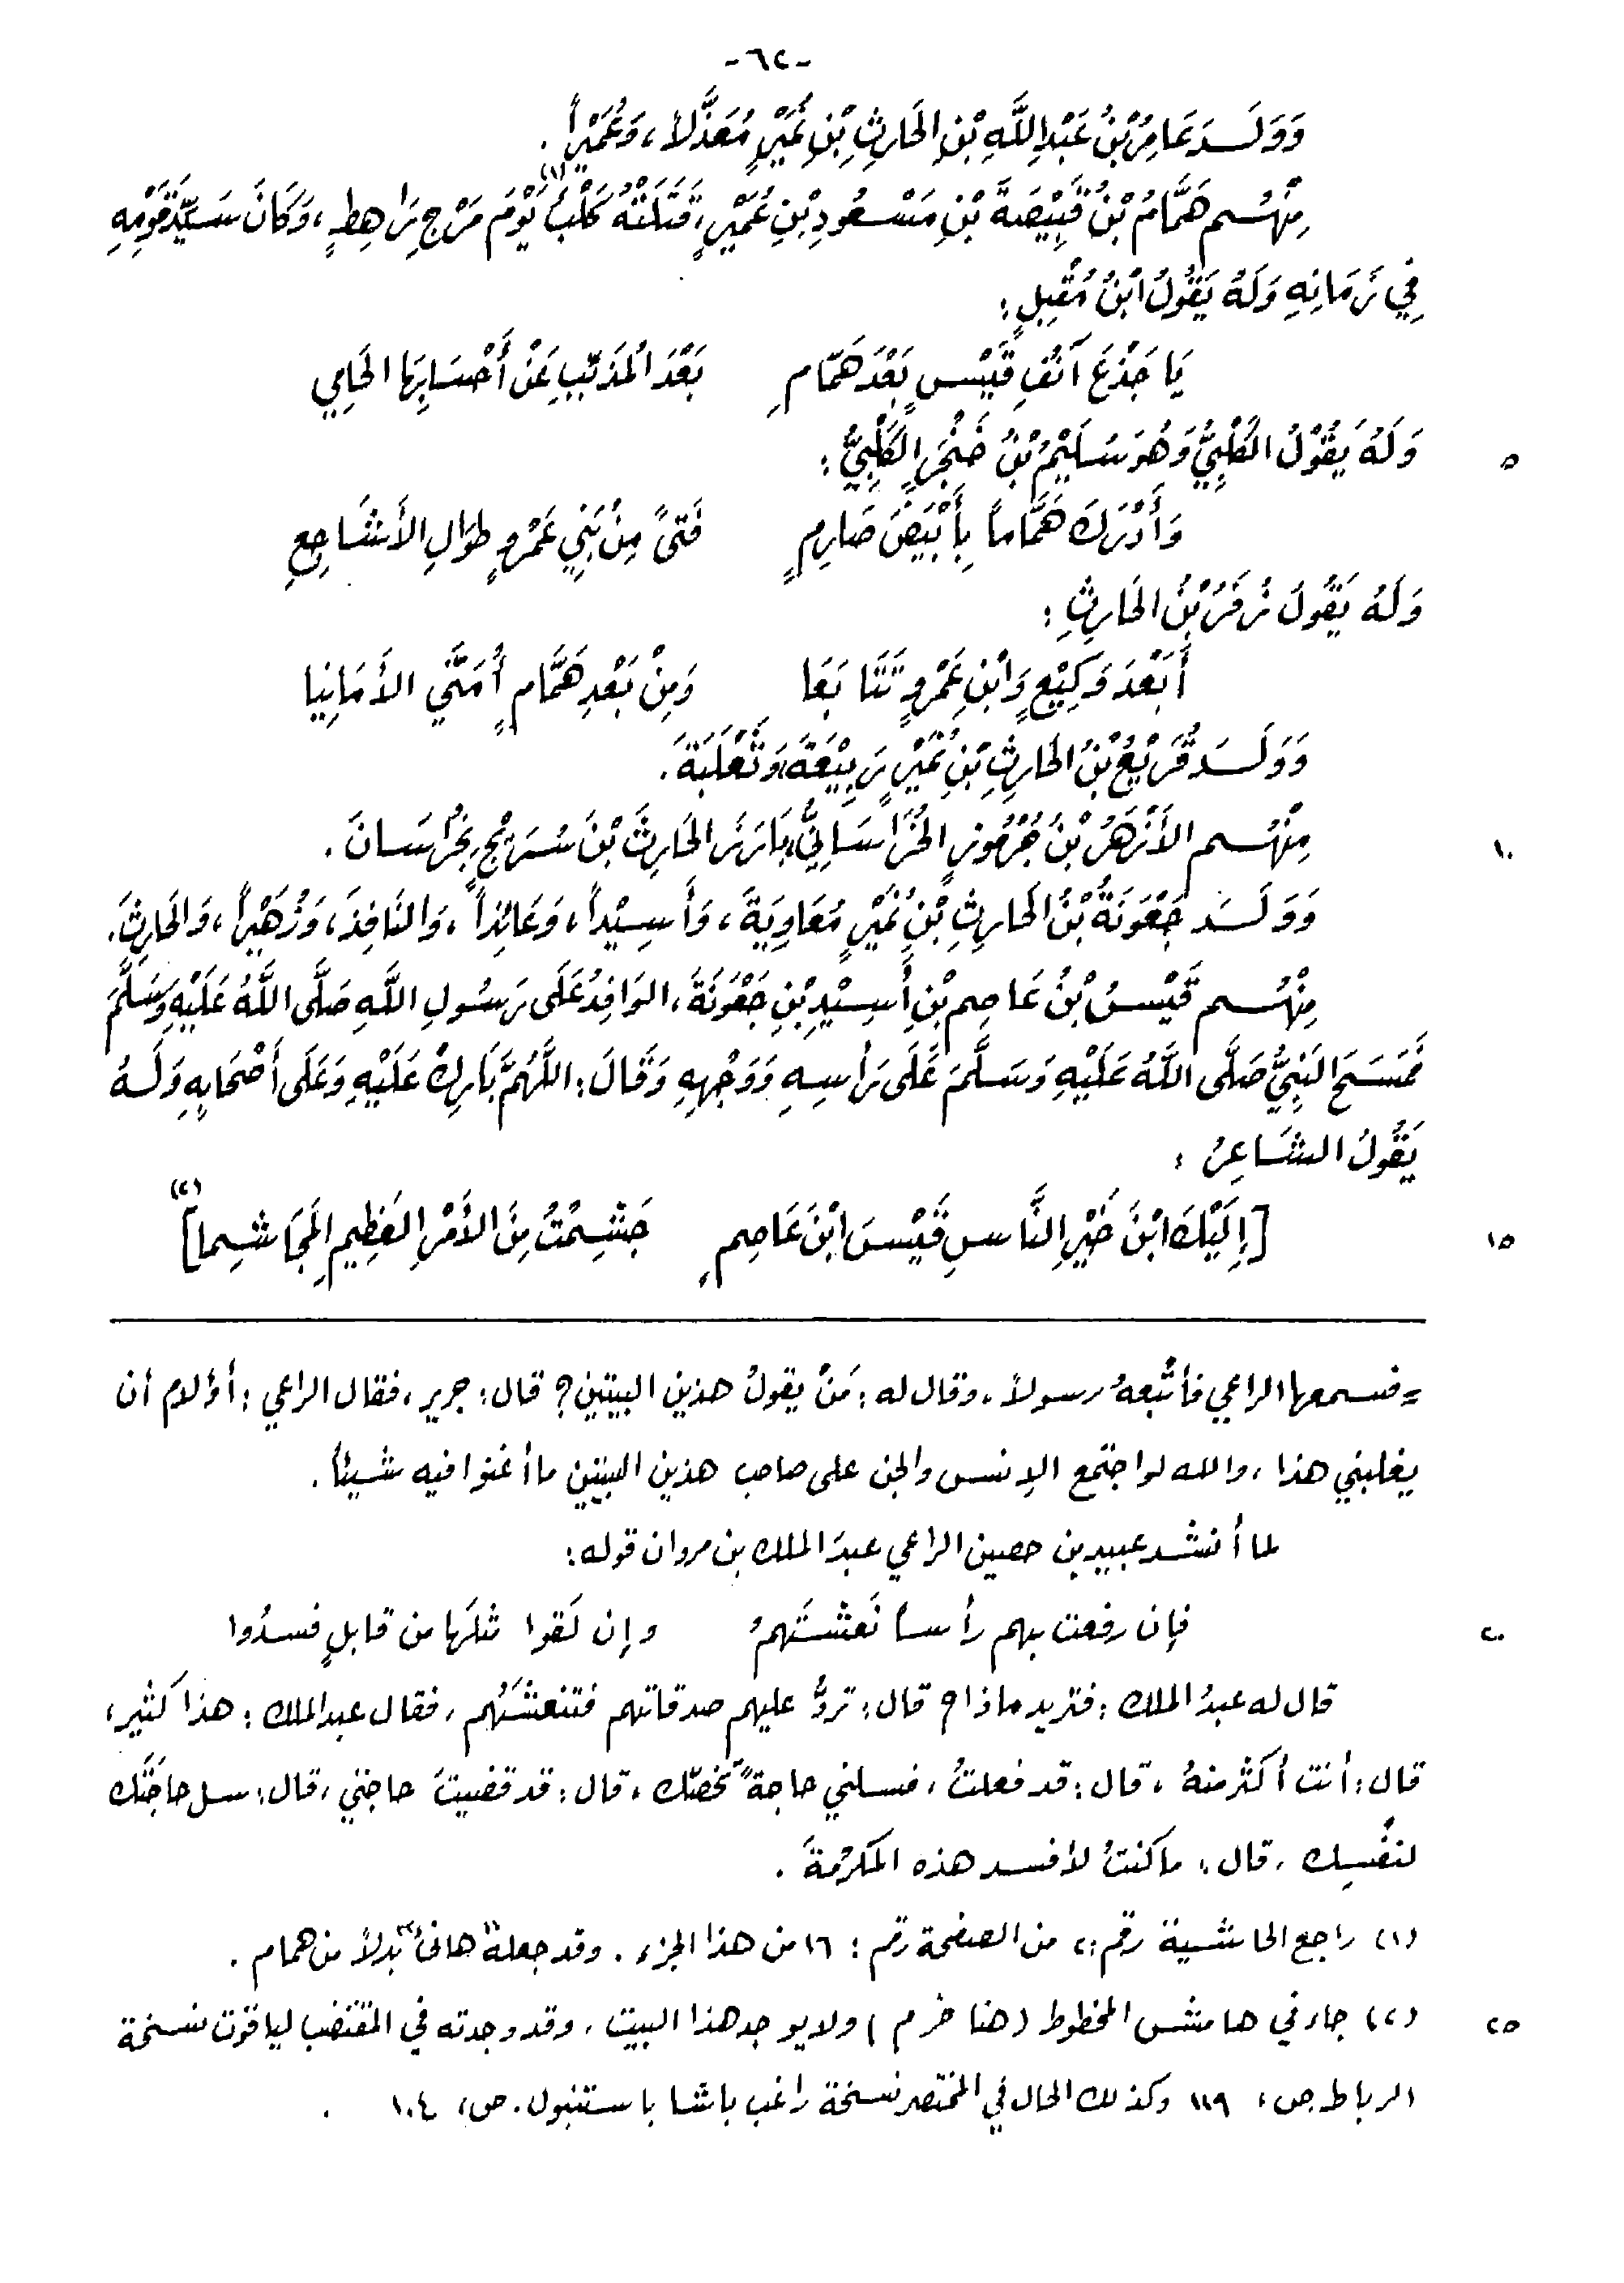 -٦٢-
وَوَلَـدَ عَامِرُ بْنُ عَبْدِ اللَّهِ بْنِ الحَارِثِ بْنِ نُمَيْرٍ مُعَذَّلاً، وَعُمَيْراً.
مِنْهُـم هَمَّامُ بْنُ قَبِيْصَةَ بْنِ مَسْعُودِ بْنِ عُمَيْرٍ، قَتَلَتْهُ كَلْبُ (١) يَوْمَ مَرْجِ رَاهِطٍ، وَكَانَ سَيِّدَ قَوْمِهِ
فِي زَمَانِهِ وَلَهُ يَقُولُ ابْنُ مُقْبِلٍ:
يَا جَدْعَ آنُفِ قَيْسٍ بَعْدَ هَمّامِ    بَعْدَ المُذَبِّبِ عَنْ أَحْسَابِهَا الحَامِي
٥ وَلَهُ يَقُوْلُ الكَلْبِيُّ وَهُوَ سُلَيْمُ بْنُ خَنْجَرٍ الكَلْبِيُّ:
وَأَدْرَكَ هَمَّاماً بِأَبْيَضَ صَارِمٍ    فَتىً مِنْ بَنِي عَمْرٍو طِوَالِ الأَشَاجِعِ
وَلَهُ يَقُولُ زُفَرُ بْنُ الحَارِثِ:
أَبَعْدَ وَكِيْعٍ وَابْنِ عَمْرٍو تَتَابَعَا    وَمِنْ بَعْدِ هَمَّامٍ أُمَنَّي الأَمَانِيا
وَوَلَـدَ قُرَيْعُ بْنُ الحَارِثِ بْنِ نُمَيْرٍ رَبِيْعَةَ، وَثَعْلَبَةَ.
١٠ مِنْهُـم الأَزْهَرُ بْنُ جُرْمُوزٍ الخُرَاسَانِيُّ، بَارَزَ الحَارِثَ بْنَ سُرَيْجٍ بِخُرَاسَانَ.
وَوَلَـدَ جَعْوَنَةُ بْنُ الحَارِثِ بْنِ نُمَيْرٍ مُعَاوِيَةَ، وَأَسِيْداً، وَعَائِذاً، وَالنَافِذَ، وَزُهَيْراً، وَالحَارِثَ.
مِنْهُـم قَيْسُ بْنُ عَاصِمِ بْنِ أَسِيْدِ بْنِ جَعْوَنَةَ، الوَافِدُ عَلَى رَسُولِ اللَّهِ صَلَّى اللَّهُ عَلَيْهِ وَسَلَّمَ
فَمَسَحَ النَبِيُّ صَلَّى اللَّهُ عَلَيْهِ وَسَلَّمَ عَلَى رَأسِهِ وَوَجْهِهِ وَقَالَ: اللَّهُمَّ بَارِكْ عَلَيْهِ وَعَلَى أَصْحَابِهِ وَلَـهُ
يَقُولُ الشَاعِرُ:
١٥ [إِلَيْكَ ابْنَ خَيْرِ النَّاسِ قَيْسَ ابْنَ عَاصِمٍ    جَشِمْتُ مِنَ الأَمْرِ العَظِيمِ المَجَاشِما] (٢)
= فسمعها الراعي فأتبعهُ رسولاً، وقال له: مَنْ يقولُ هذين البيتين؟ قال: جرير، فقال الراعي: أؤلام أن
يغلبني هذا، والله لو اجتمع الإنس والجن على صاحب هذين البيتين ما أغنوا فيه شيئاً.
لما أنشد عبيد بن حصين الراعي عبدَ الملك بن مروان قوله:
٢٠ فإن رفعت بهم رأساً نَعشتَهمُ    وإن لَقوا مثلَها من قابلٍ فسدُوا
قال له عبدُ الملك: فتريد ماذا؟ قال: تردُّ عليهم صدقاتهم فتنعشَهُم، فقال عبد الملك: هذا كثير،
قال: أنت أكثر منهُ، قال: قد فعلتُ، فسلني حاجةً تخصّك، قال: قد قضيتَ حاجتي، قال: سل حاجَتَك
لنفْسِك، قال: ما كنتُ لأفسد هذه المكرُمةَ.
(١) راجع الحاشية رقم: ٢ من الصفحة رقم: ١٦ من هذا الجزء. وقد جعله "هانئ" بدلاً من همام.
٢٥ (٢) جاء في هامش المخطوط (هنا خرم) ولا يوجد هذا البيت، وقد وجدته في المقتضب لياقوت نسخة
الرباط ص، ١١٩ وكذلك الحال في المختصر نسخة راغب باشا باستنبول. ص، ١٠٤.